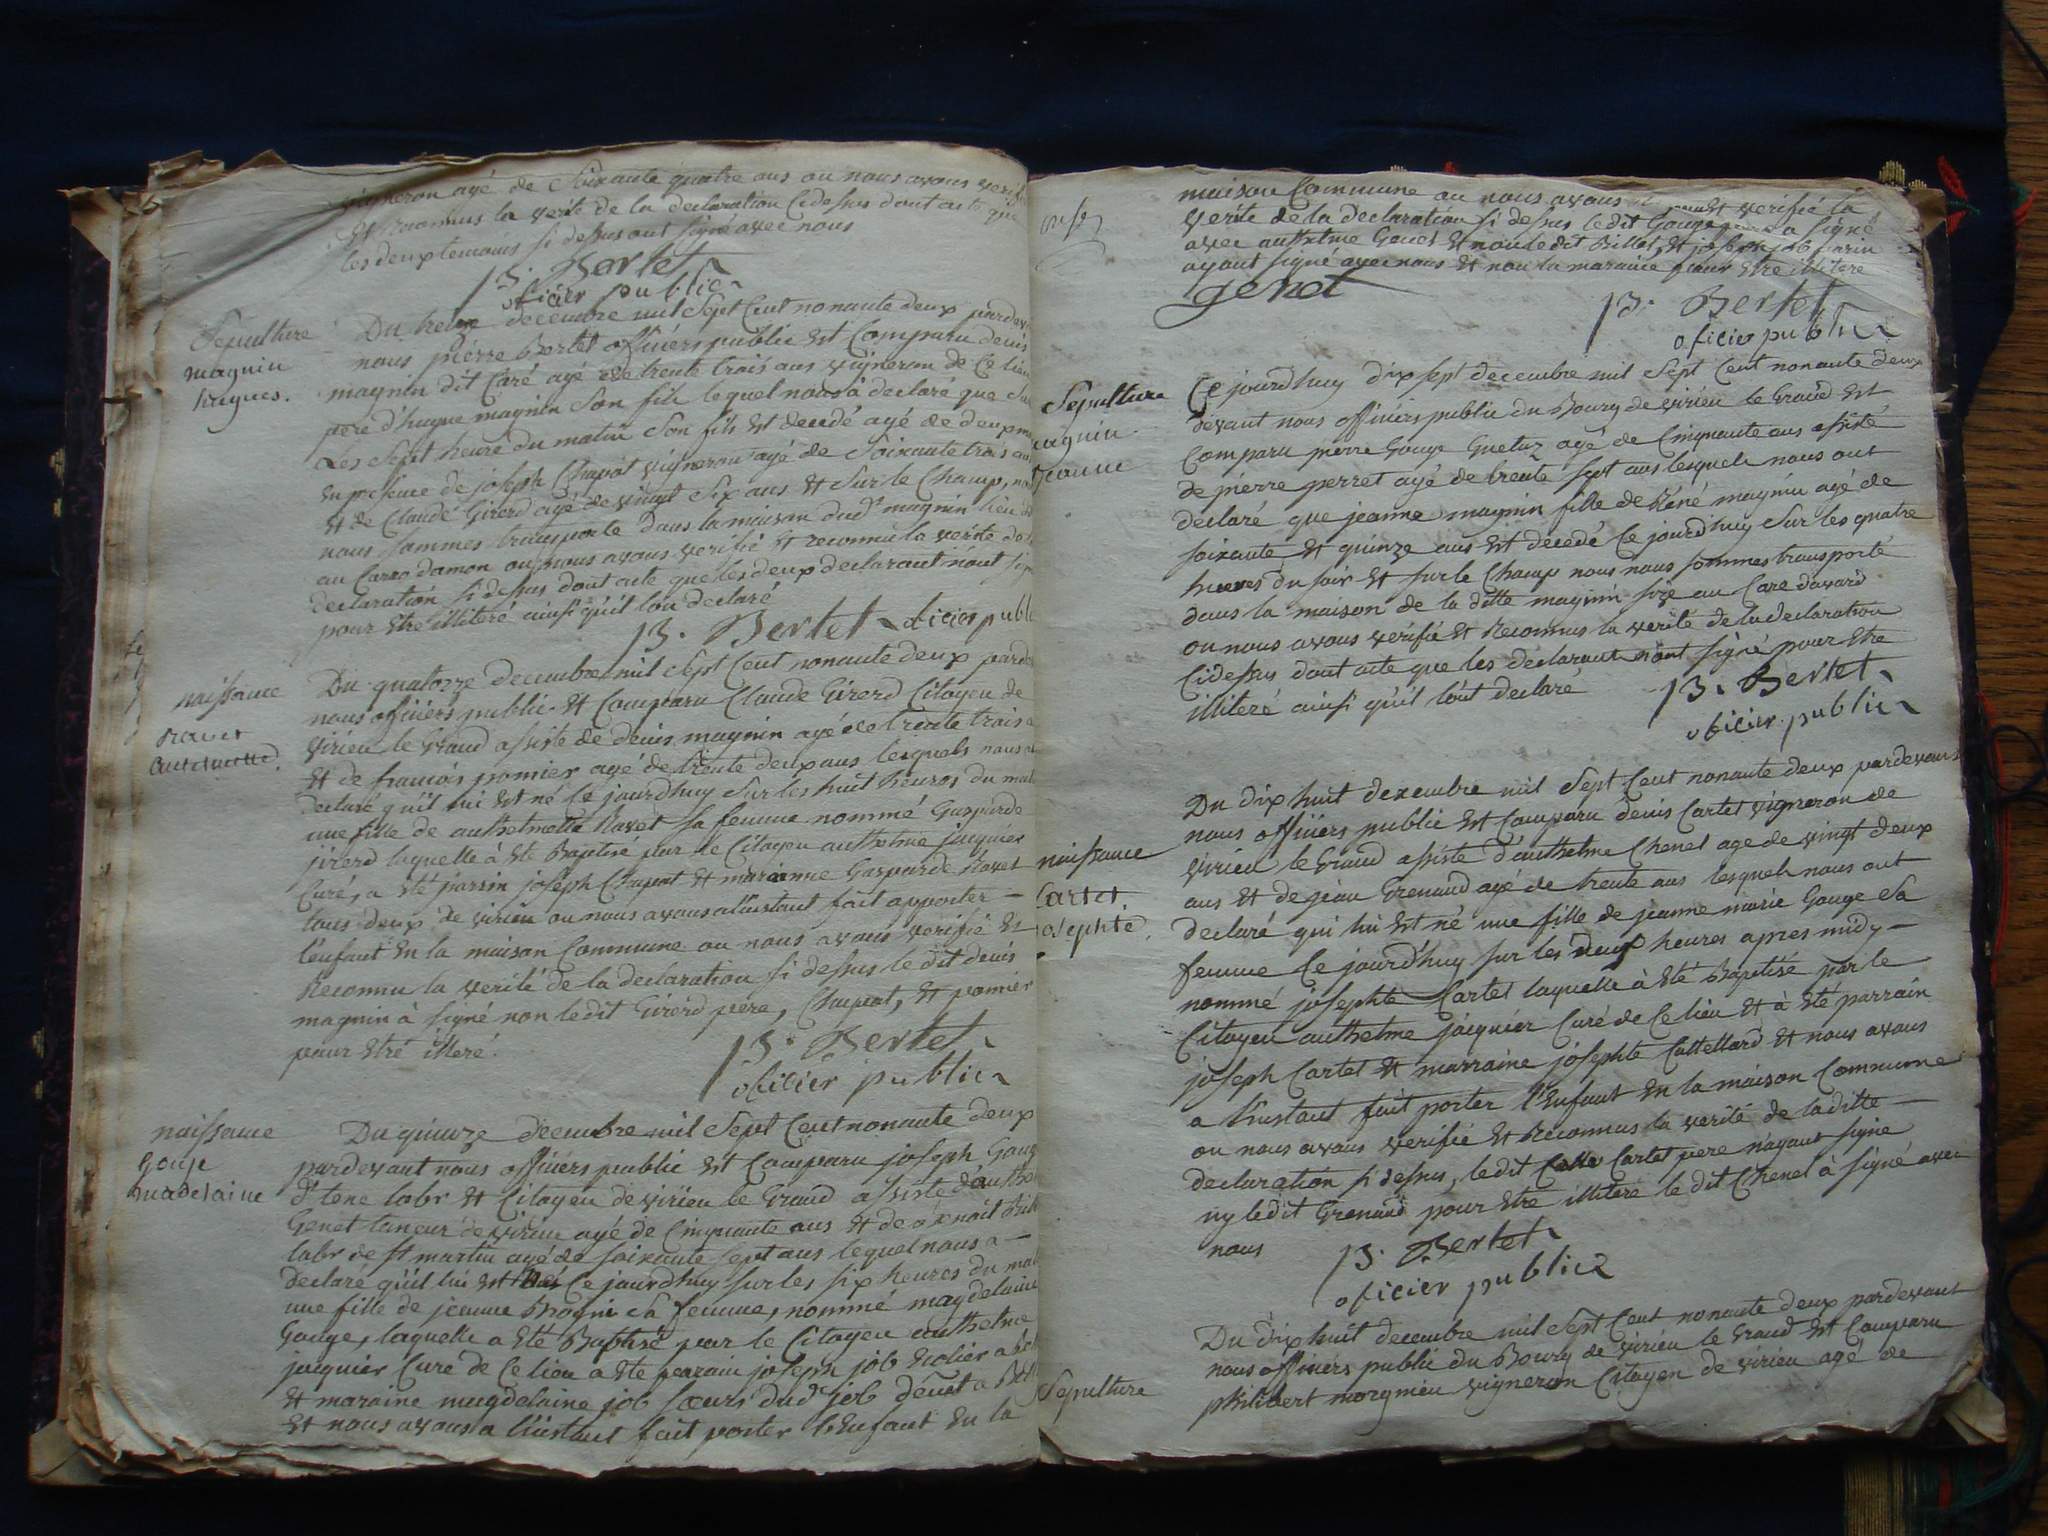 vigneron agé de Soixante quatre ans ou nous avons verifié
Et Reconnus la verité de la declaration Cidessus dont acte que
les deux temouins si dessus ont signé avec nous
P. Bertet
oficier public
Sépulture
magnin
hugues.
Du treize decembre mil Sept Cent nonante deux pardev
nous pierre Bertet officiers public Est Comparu denis
magnin dit Caré agé de trente trois ans vigneron de Ce lieu
pere d'hugue magnin Son fils lequel nous à declaré que Sur
Les Sept heure du matin Son fils Est decedé agé de deux
En presence de joseph Chapot vigneron agé de Soixante trois ans
Et de Claude Girerd agé de vingt Six ans Et Sur le Champ, nous
nous Sommes transporté dans la maison dud magnin lieu dit
au Carro damon ou nous avons verifié Et reconnu la verité de
declaration si dessus dont acte que les deux declarant n'ont signé
pour Etre illiteré ainsi qu'il l'on declaré
P. Bertet oficier public
naissance
Ravet
Anthelmette.
Du quatorze decembre mil Sept Cent nonante deux parde
nous officiers public Et Comparu Claude Girerd Citoyen de
virieu le Grand assisté de denis magnin agé de trente trois a
Et de francois pomier agé de trente deux ans lesquels nous
declaré qu'il lui Est né Ce jourdhuy Sur les huit heures du mat
une fille de anthelmette Ravet Sa femme nommé Gasparde
jirerd laquelle à Eté Baptisé par le Citoyen anthelme jaquier
Curé, a Eté parrin joseph Chapot Et marienne Gasparde Ravet
tous deux de virieu ou nous avons a l'instant fait apporter
l'enfant En la maison Commune ou nous avons verifié Et
Reconnu la verité de la declaration si dessus le dit denis
magnin à signé non ledit Girerd pere, Chapot, Et pomier
pour Etré illeré.
P. Bertet
oficier public
naissance
Gouje
madelaine
Du quinze decembre mil Sept Cent nonante deux
pardevant nous officiers public Est Comparu joseph Gouge
d'tene labr Et Citoyen de virieu le Grand assisté d'anthel
Genet taneur de virieu agé de Cinquante ans Et de Benoit Bill
labr de st martin agé de soixante sept ans lequel nous a
declaré qu'il lui Est Ce jourdhuy sur les six heures du mat
une fille de jeanne sa femme, nommé magdelaine
Gouge, laquelle a Eté Baptisé par le Citoyen anthelme
jaquier Curé de Ce lieu a Eté parain joseph job Ecolier a
Et maraine magdelaine job Sœurs dud job
Et nous avons a l'instant fait porter l'Enfant En la
maison Commune ou nous avons Et verifié la
verité de la declaration si dessus ledit Gouge a signé
avec anthelme Genet Et non ledit Billet, Et joseph job parin
ayant signé avec nous Et non la maraine pour Etre illiteré
genet
P. Bertet
oficier public
Sépulture
magnin
Jeanne
Ce jourdhuy dix sept decembre mil Sept Cent nonante deux
devant nous officiers public du Bourg de virieu le Grand Est
Comparu pierre Gouge Guetaz agé de Cinquante ans assisté
de pierre perret agé de trente sept ans lesquels nous ont
declaré que jeanne magnin fille de René magnin agé de
soixante Et quinze ans Est decedé Ce jourdhuy Sur les quatre
heures du soir Et sur le Champ nous nous sommes transporté
dans la maison de la ditte magnin size au Caro davard
ou nous avons verifié Et Reconnus la verité de la declaration
Cidessus dont acte que les declarant n'ont signé pour Etre
illiteré ainsi qu'il l'ont declaré
P. Bertet
oficier public
naissance
Cartet.
Josephte.
Du dix huit decembre mil Sept Cent nonante deux pardevant
nous officiers public Est Comparu denis Cartet vigneron de
virieu le Grand assisté d'anthelme Chenel age de vingt deux
ans Et de jean Grenaud agé de trente ans lesquels nous ont
declaré qui lui Est né une fille de jeanne marie Gouge Sa
femme Ce jourd'huy sur les neuf heures apres midy
nommé josephte Cartet laquelle à Eté Baptisé par le
Citoyen anthelme jaquier Curé de Ce lieu Et à Eté parrain
joseph Cartet Et marraine josephte Cattellard Et nous avons
a l'instant fait porter l'Enfant En la maison Commune
ou nous avons verifié Et Reconnus la verité de la ditte
declaration si dessus, ledit Cartet pere n'ayant signé
ny ledit Grenaud pour Etre illiteré le dit Chenel à signé avec
nous
P. Bertet
oficier public
Sepulture
Du dix huit decembre mil Sept Cent nonante deux pardevant
nous officiers public du Bourg de virieu le Grand Est Comparu
philibert morgnieu vigneron Citoyen de virieu agé de